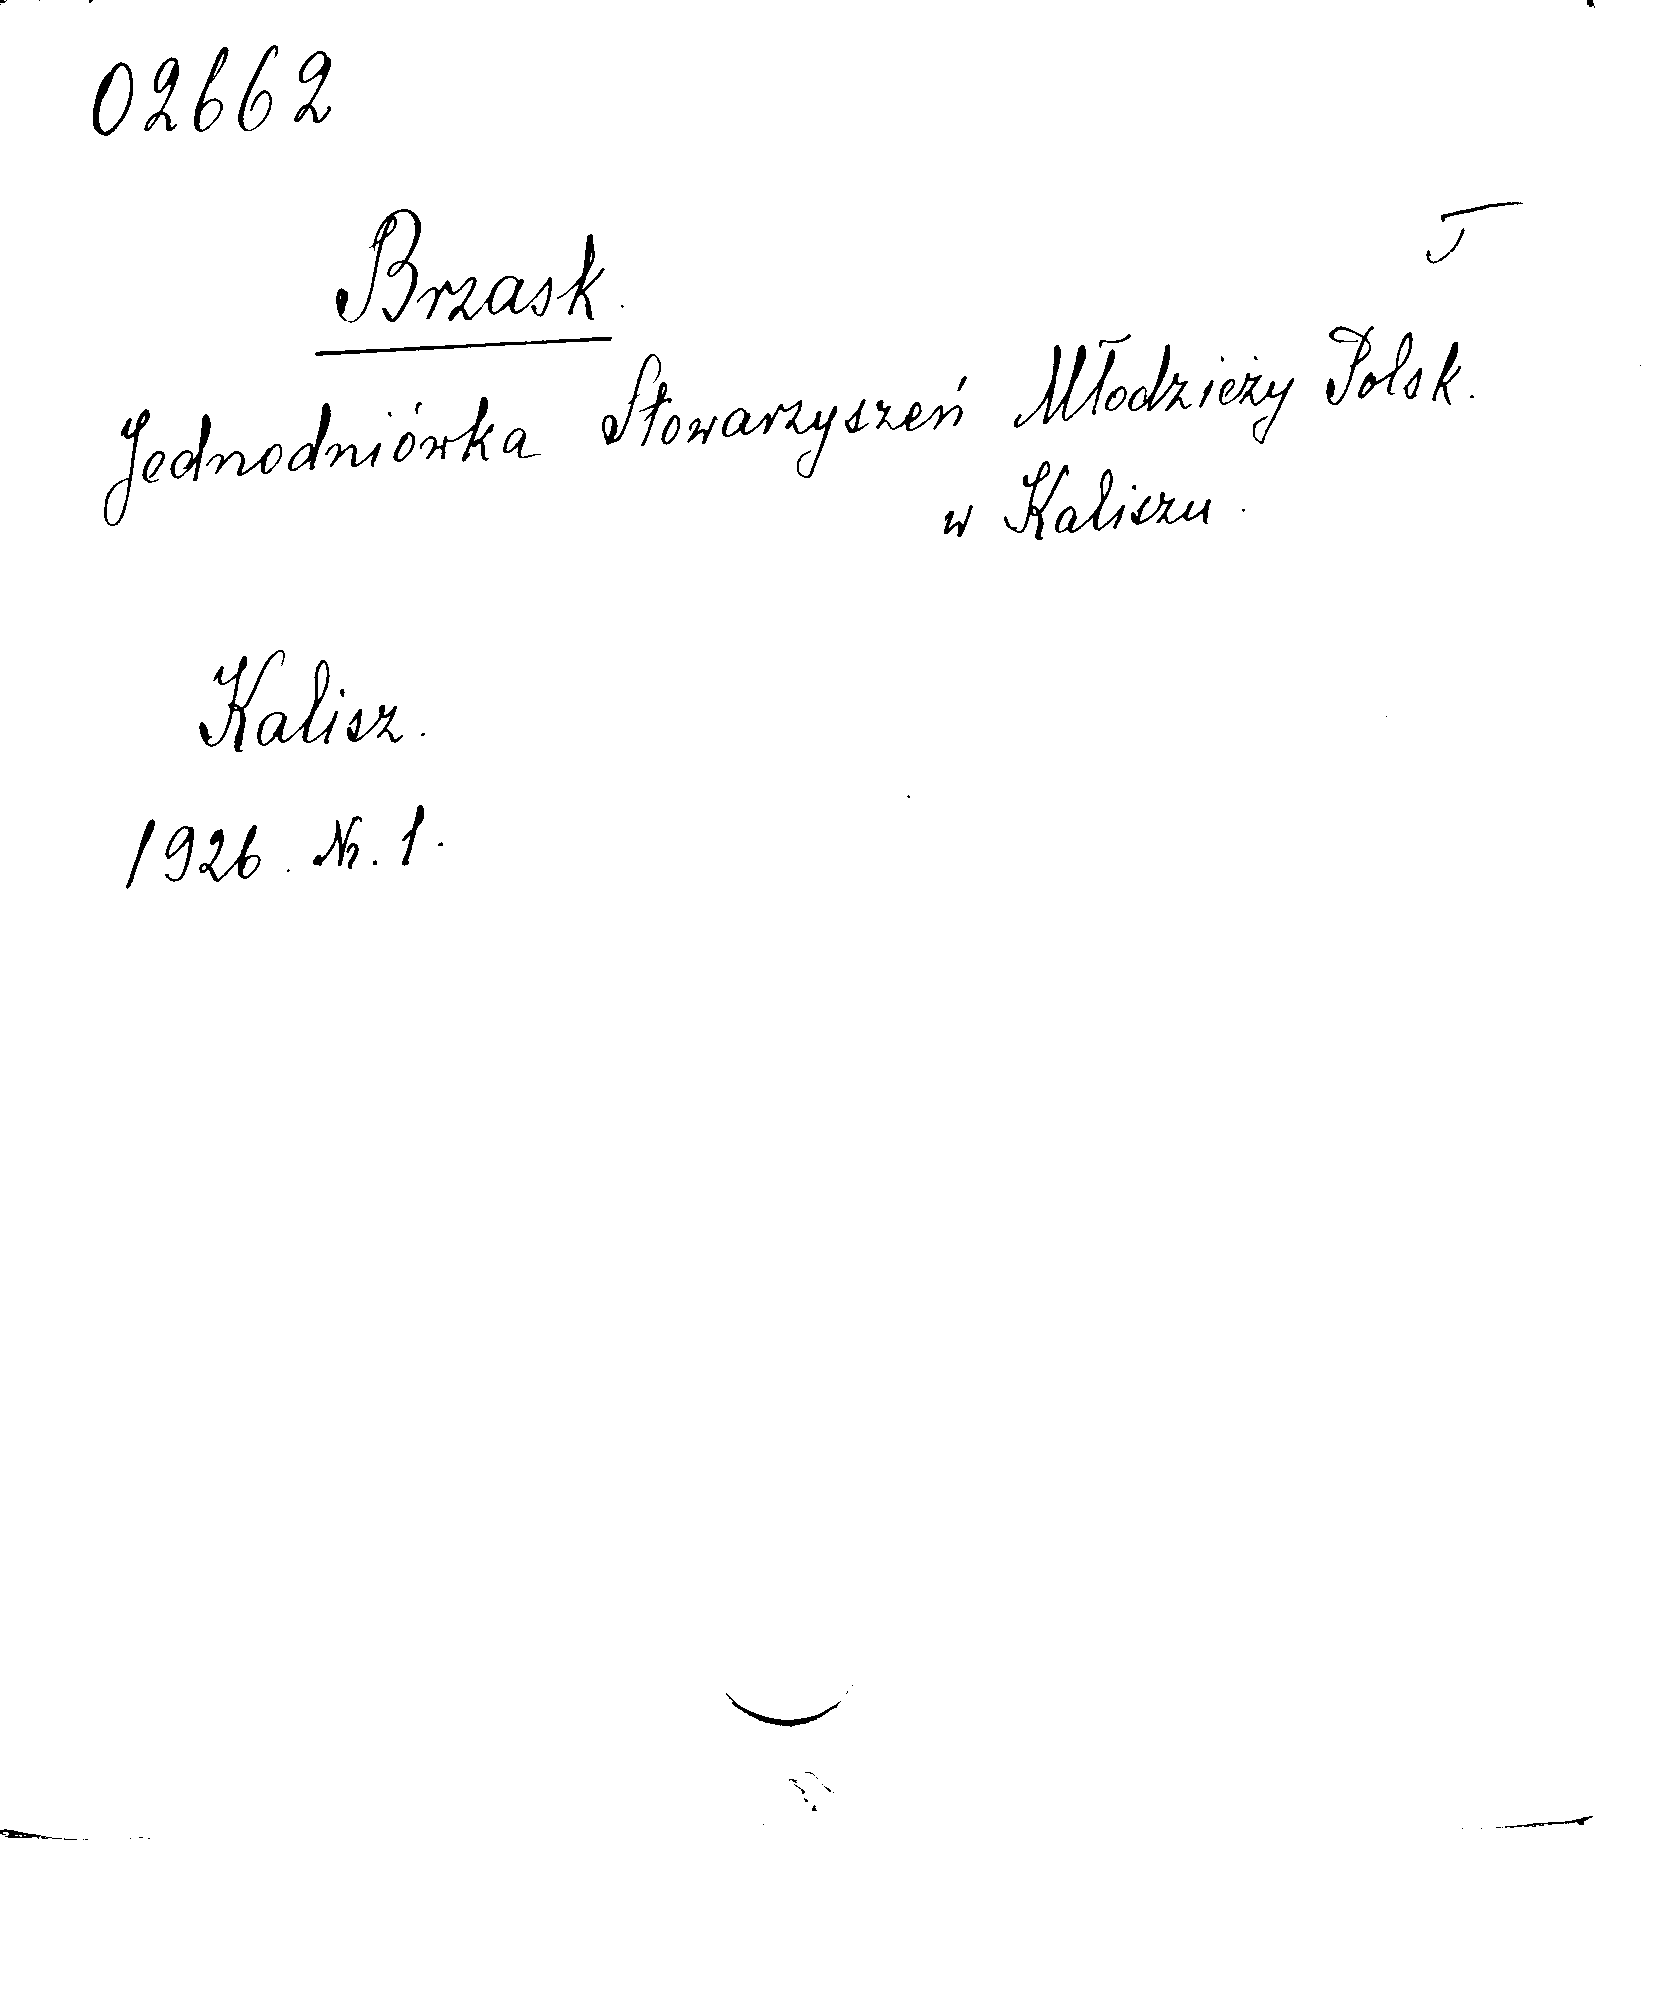 02662
J
Brzask.
Jednodniówka Stowarzyszeń Młodzieży Polsk.
w Kaliszu.
Kalisz.
1926. Nr. 1.